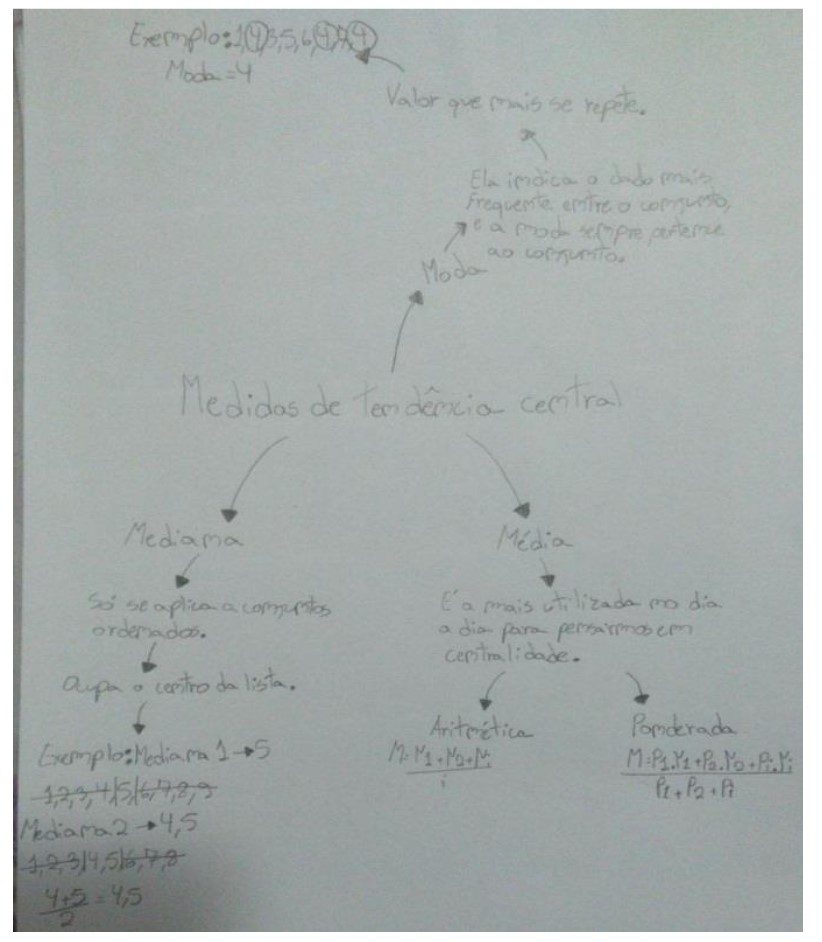 Exemplo: 1,4,3,5,6,4,9,4
Moda = 4
Valor que mais se repete.
Ela indica o dado mais
frequente entre o conjunto,
e a moda sempre pertence
ao conjunto.
Moda
Medidas de tendência central
Mediana
Só se aplica a conjuntos
ordenados.
Ocupa o centro da lista.
Exemplo: Mediana 1 → 5
1,2,3,4|5|6,7,8,9
Mediana 2 → 4,5
1,2,3|4,5|6,7,8
4+5/2 = 4,5
Média
É a mais utilizada no dia
a dia para pensarmos em
centralidade.
Aritmética
M=N1+N2+Ni
i
Ponderada
M=P1.N1+P2.N2+Pi.Ni
P1+P2+Pi